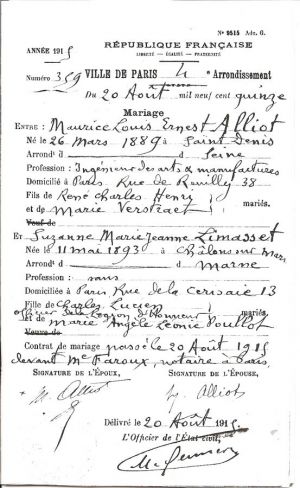 N° 9515 Adc. G.
RÉPUBLIQUE FRANÇAISE
LIBERTÉ — ÉGALITÉ — FRATERNITÉ
ANNÉE 1915
VILLE DE PARIS
Numéro 359 4e Arrondissement
Du 20 Août mil neuf cent quinze
Mariage
ENTRE : Maurice Louis Ernest Alliot
Né le 26 Mars 1889 à Saint Denis
Arrond' d Seine
Profession : Ingénieur des arts & manufactures
Domicilié à Paris Rue de Reuilly 38
Fils de René Charles Henry
et de Marie Verstraet mariés.
Veuf de
ET Suzanne Marie Jeanne Limasset
Née le 11 mai 1893 à Châlons sur Mar
Arrond' d Marne
Profession : sans
Domiciliée à Paris Rue de la Cerisaie 13
Fille de Charles Lucien
officier de la Légion d'Honneur mariés.
et de Marie Angèle Léonie Poullot
Veuve de
Contrat de mariage passé le 20 Août 1915
devant Me Faroux, notaire à Paris
SIGNATURE DE L'ÉPOUX, SIGNATURE DE L'ÉPOUSE,
M. Alliot Alliot
Délivré le 20 Août 1915.
L'Officier de l'État civil,